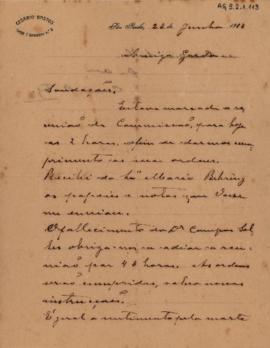 CESARIO BASTOS
AG 3.2.1.113
São Paulo, 28 de Junho 1913
Amigo
Saudações.
Estava marcada a reunião da Commissão, para hoje
as 2 horas, afim de darmos cumprimento as suas ordens.
Recebi do Snr Mario Behring
os papeis e notas que Voce
me enviou.
O fallecimento do Dr Campos Salles
obriga-nos a adiar a reunião
por 48 horas. As ordens
serão cumpridas, salvo novas
instrucções.
É geral o sentimento pela morte